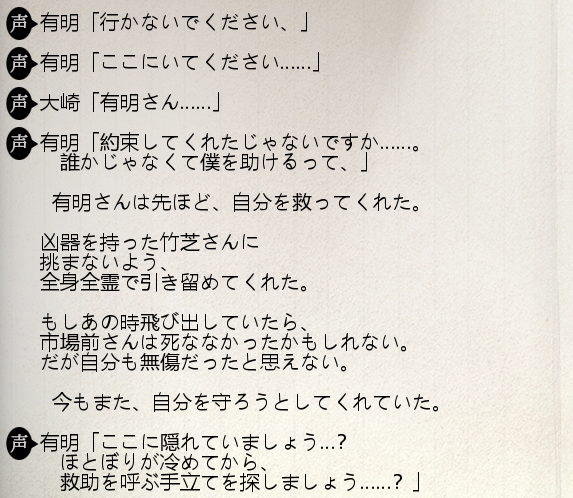 声 有明「行かないでください、」
声 有明「ここにいてください……」
声 大崎「有明さん……」
声 有明「約束してくれたじゃないですか……。
誰かじゃなくて僕を助けるって、」
有明さんは先ほど、自分を救ってくれた。
凶器を持った竹芝さんに
挑まないよう、
全身全霊で引き留めてくれた。
もしあの時飛び出していたら、
市場前さんは死ななかったかもしれない。
だが自分も無傷だったと思えない。
今もまた、自分を守ろうとしてくれていた。
声 有明「ここに隠れていましょう…?
ほとぼりが冷めてから、
救助を呼ぶ手立てを探しましょう……? 」